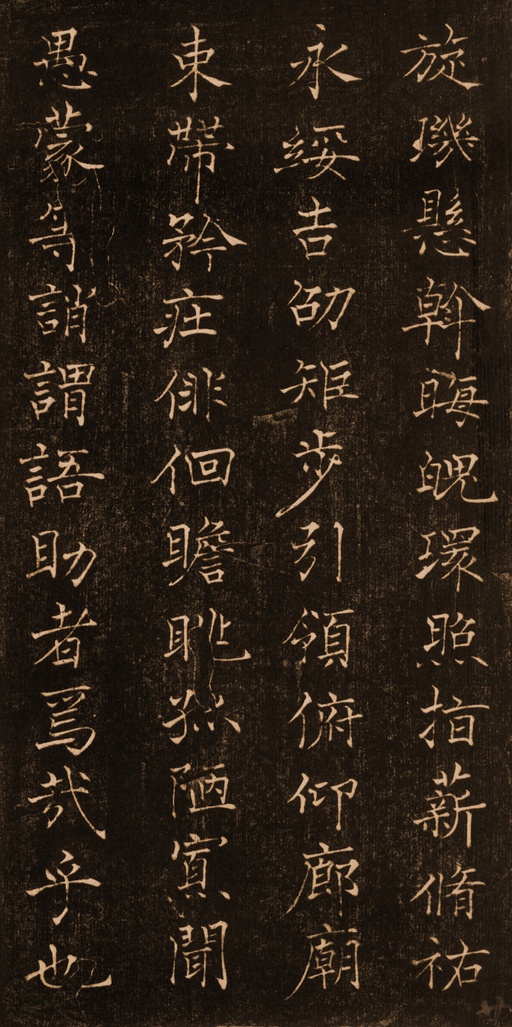 旋璣懸斡晦魄環照指薪脩祐
永綏吉劭矩步引領俯仰廊廟
束帶矜莊俳佪瞻眺孤陋寡聞
愚蒙等誚謂語助者焉哉乎也